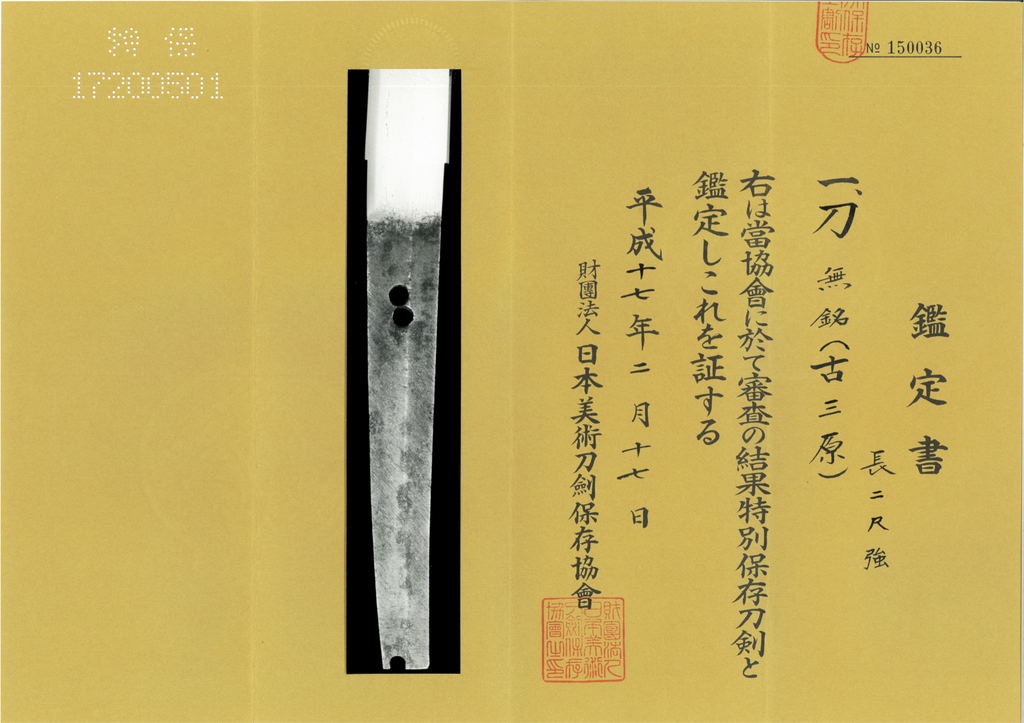 № 150036
鑑定書
長二尺強
一、刀 無銘(古三原)
右は當協會に於て審査の結果特別保存刀剣と
鑑定しこれを証する
平成十七年二月十七日
財團法人日本美術刀劍保存協會
特保
17200501